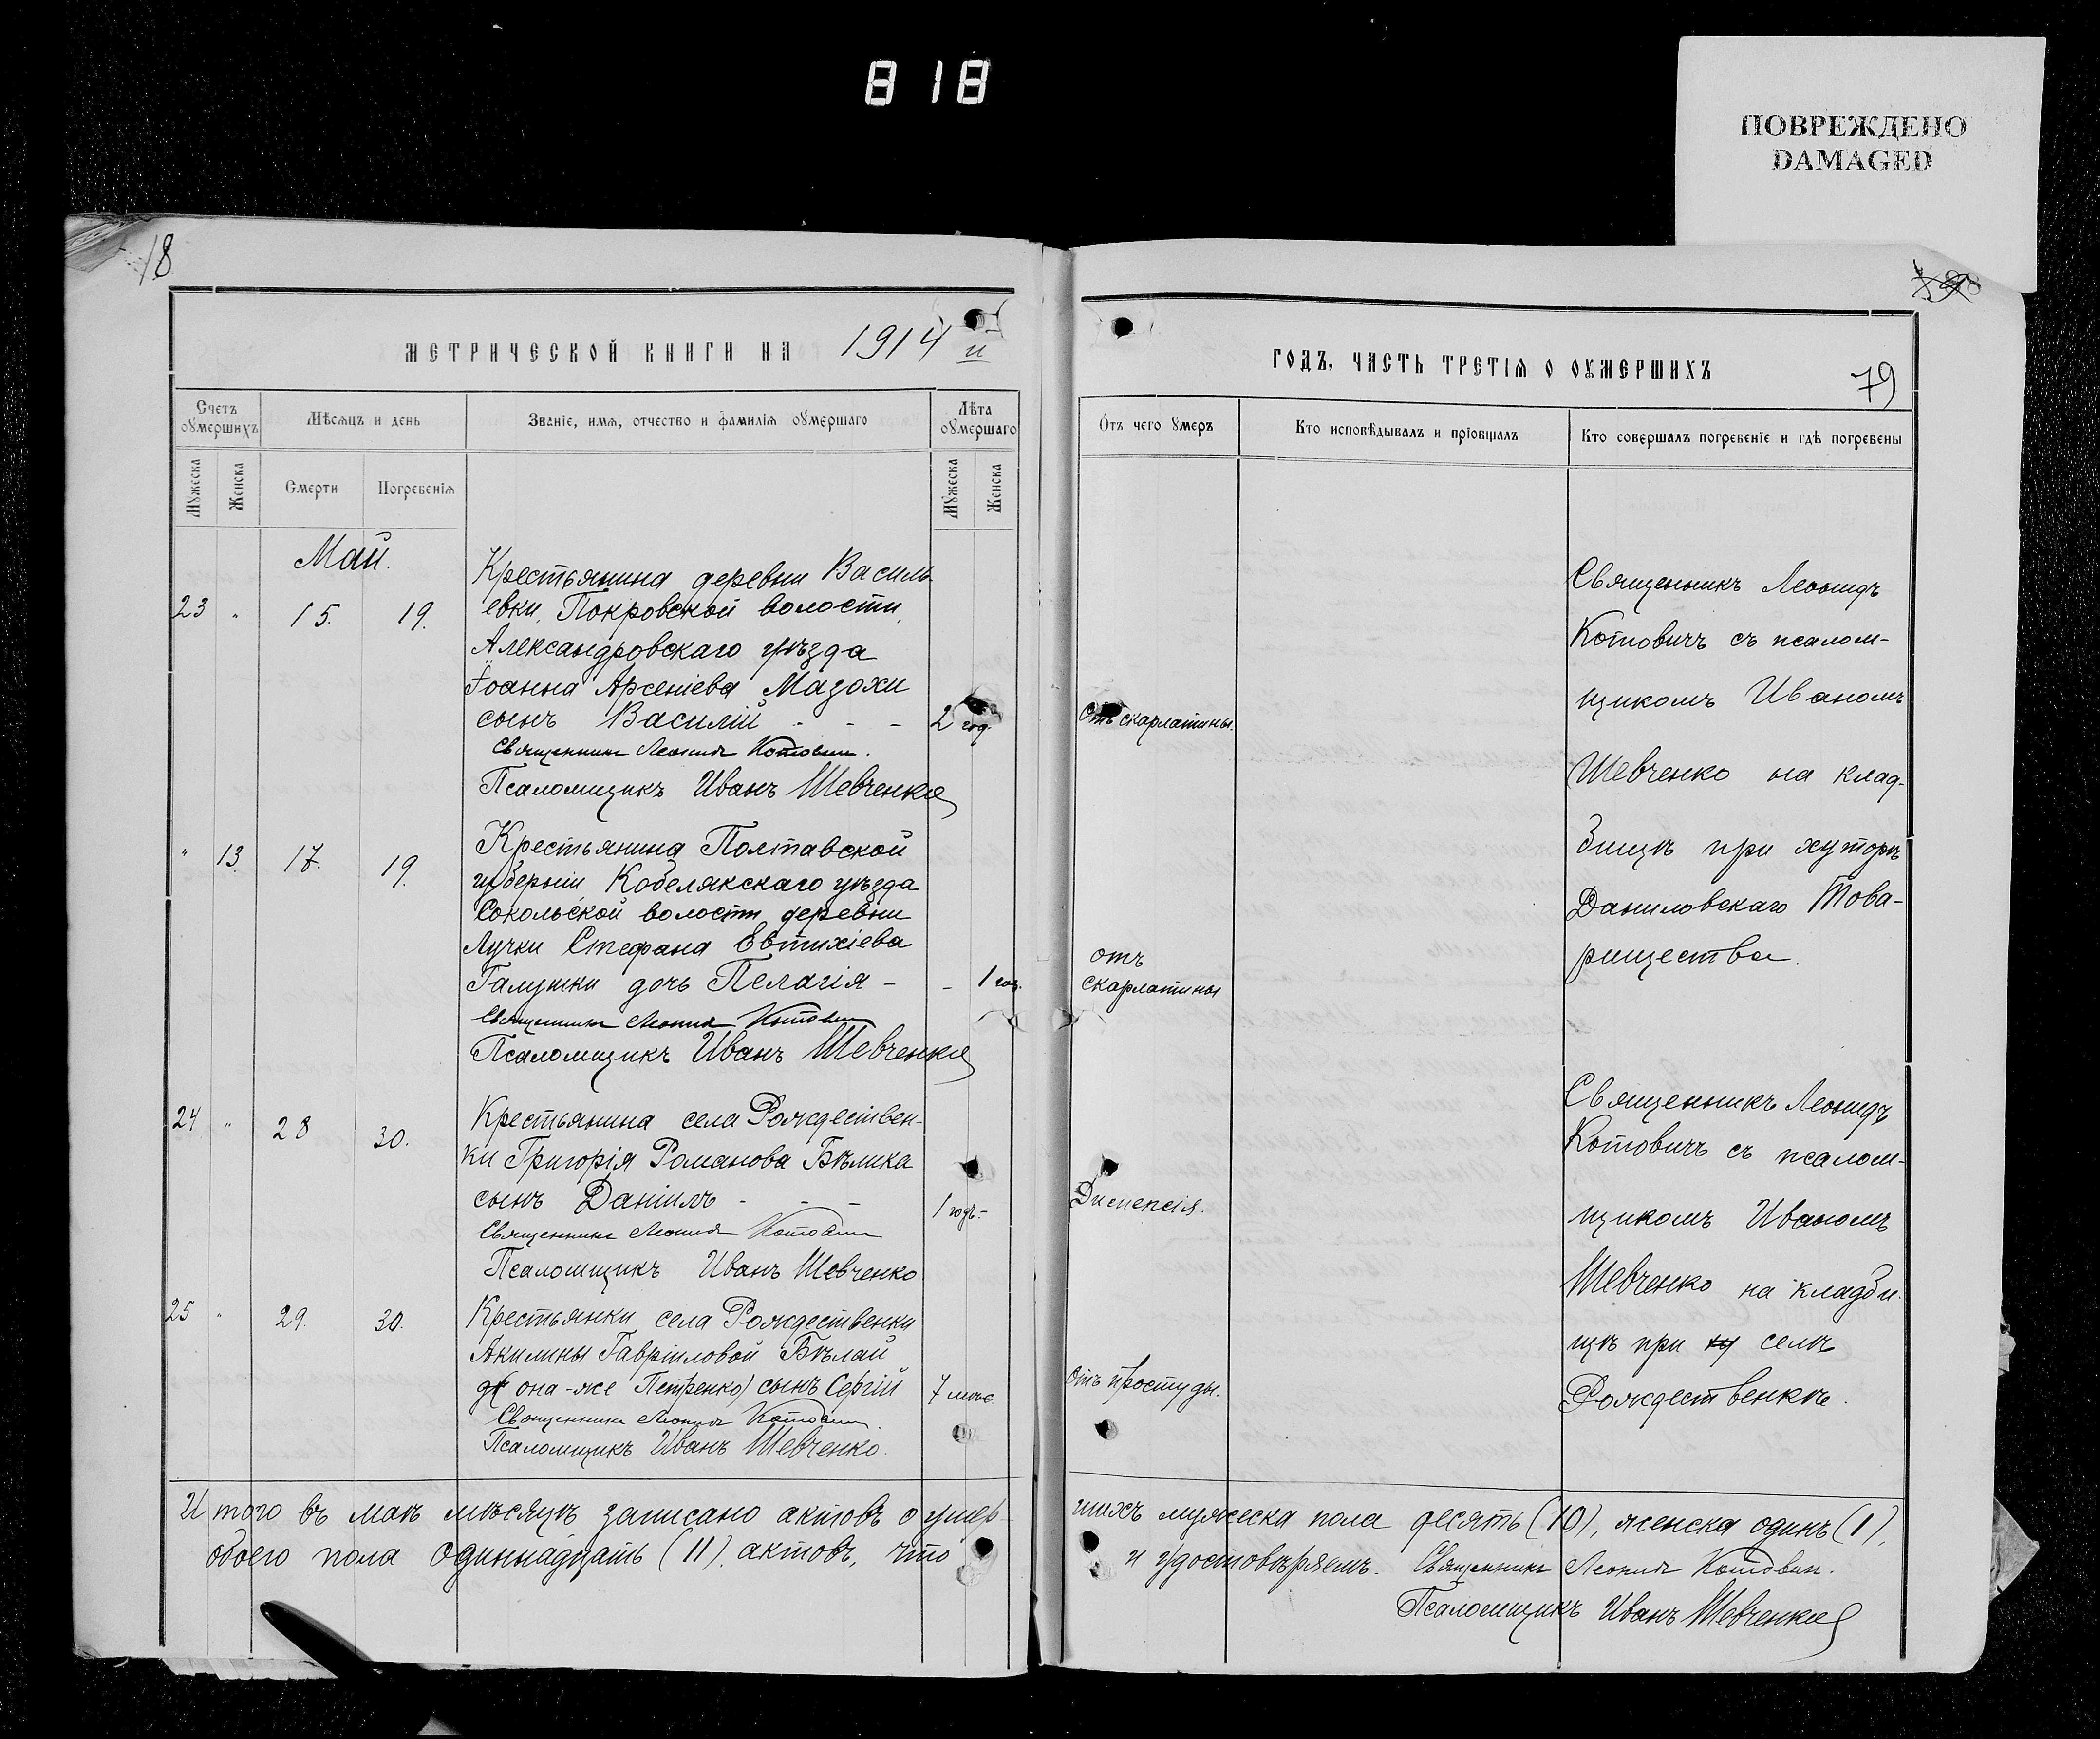 818
ПОВРЕЖДЕНО
DAMAGED
18
МЕТРИЧЕСКОЙ КНИГИ НА 1914 й
Счетъ оумершихъ
Мѣсяцъ и день
Званіе, имя, отчество и фамилія оумершаго
Лѣта оумершаго
Мужеска
Женска
Смерти
Погребенія
Мужеска
Женска
Май.
23 " 15. 19.
Крестьянина деревни Василь-
евки, Покровской волости,
Александровскаго уѣзда
Іоанна Арсеніева Мазохи
сынъ Василій - - - 2 год.
Священникъ Леонидъ Котович.
Псаломщикъ Иванъ Шевченко
" 13. 17. 19.
Крестьянина Полтавской
губерніи Кобелякскаго уѣзда
Сокольской волости деревни
Лучки Стефана Евтихіева
Галушки дочь Пелагія - - 1 год.
Священникъ Леонидъ Котович
Псаломщикъ Иванъ Шевченко
24 " 28 30.
Крестьянина села Рождествен-
ки Григорія Романова Бѣлика
сынъ Даніилъ - - - 1 годъ-
Священникъ Леонидъ Котович
Псаломщикъ Иванъ Шевченко
25 " 29. 30.
Крестьянки села Рождественки
Акилины Гавріиловой Бѣлай
(она-же Петренко) сынъ Сергій 7 мѣс.
Священникъ Леонидъ Котович.
Псаломщикъ Иванъ Шевченко.
Итого въ маѣ мѣсяцѣ записано актовъ о умер-
обоего пола одиннадцать (11) актовъ, что
ГОДЪ, ЧАСТЬ ТРЕТІЯ О ОУМЕРШИХЪ
79
Отъ чего умеръ
Кто исповѣдывалъ и пріобщалъ
Кто совершалъ погребеніе и гдѣ погребены
Отъ скарлатины.
отъ
скарлатины
Диспепсія.
Отъ простуды.
Священникъ Леонидъ
Котовичъ съ псалом-
щикомъ Иваномъ
Шевченко на клад-
бищѣ при хуторѣ
Даниловскаго Това-
рищества.
Священникъ Леонидъ
Котовичъ съ псалом-
щикомъ Иваномъ
Шевченко на кладби-
щѣ при селѣ
Рождественкѣ.
шихъ мужеска пола десять (10), женска одинъ (1),
и удостовѣряемъ. Священникъ Леонидъ Котович.
Псаломщикъ Иванъ Шевченко